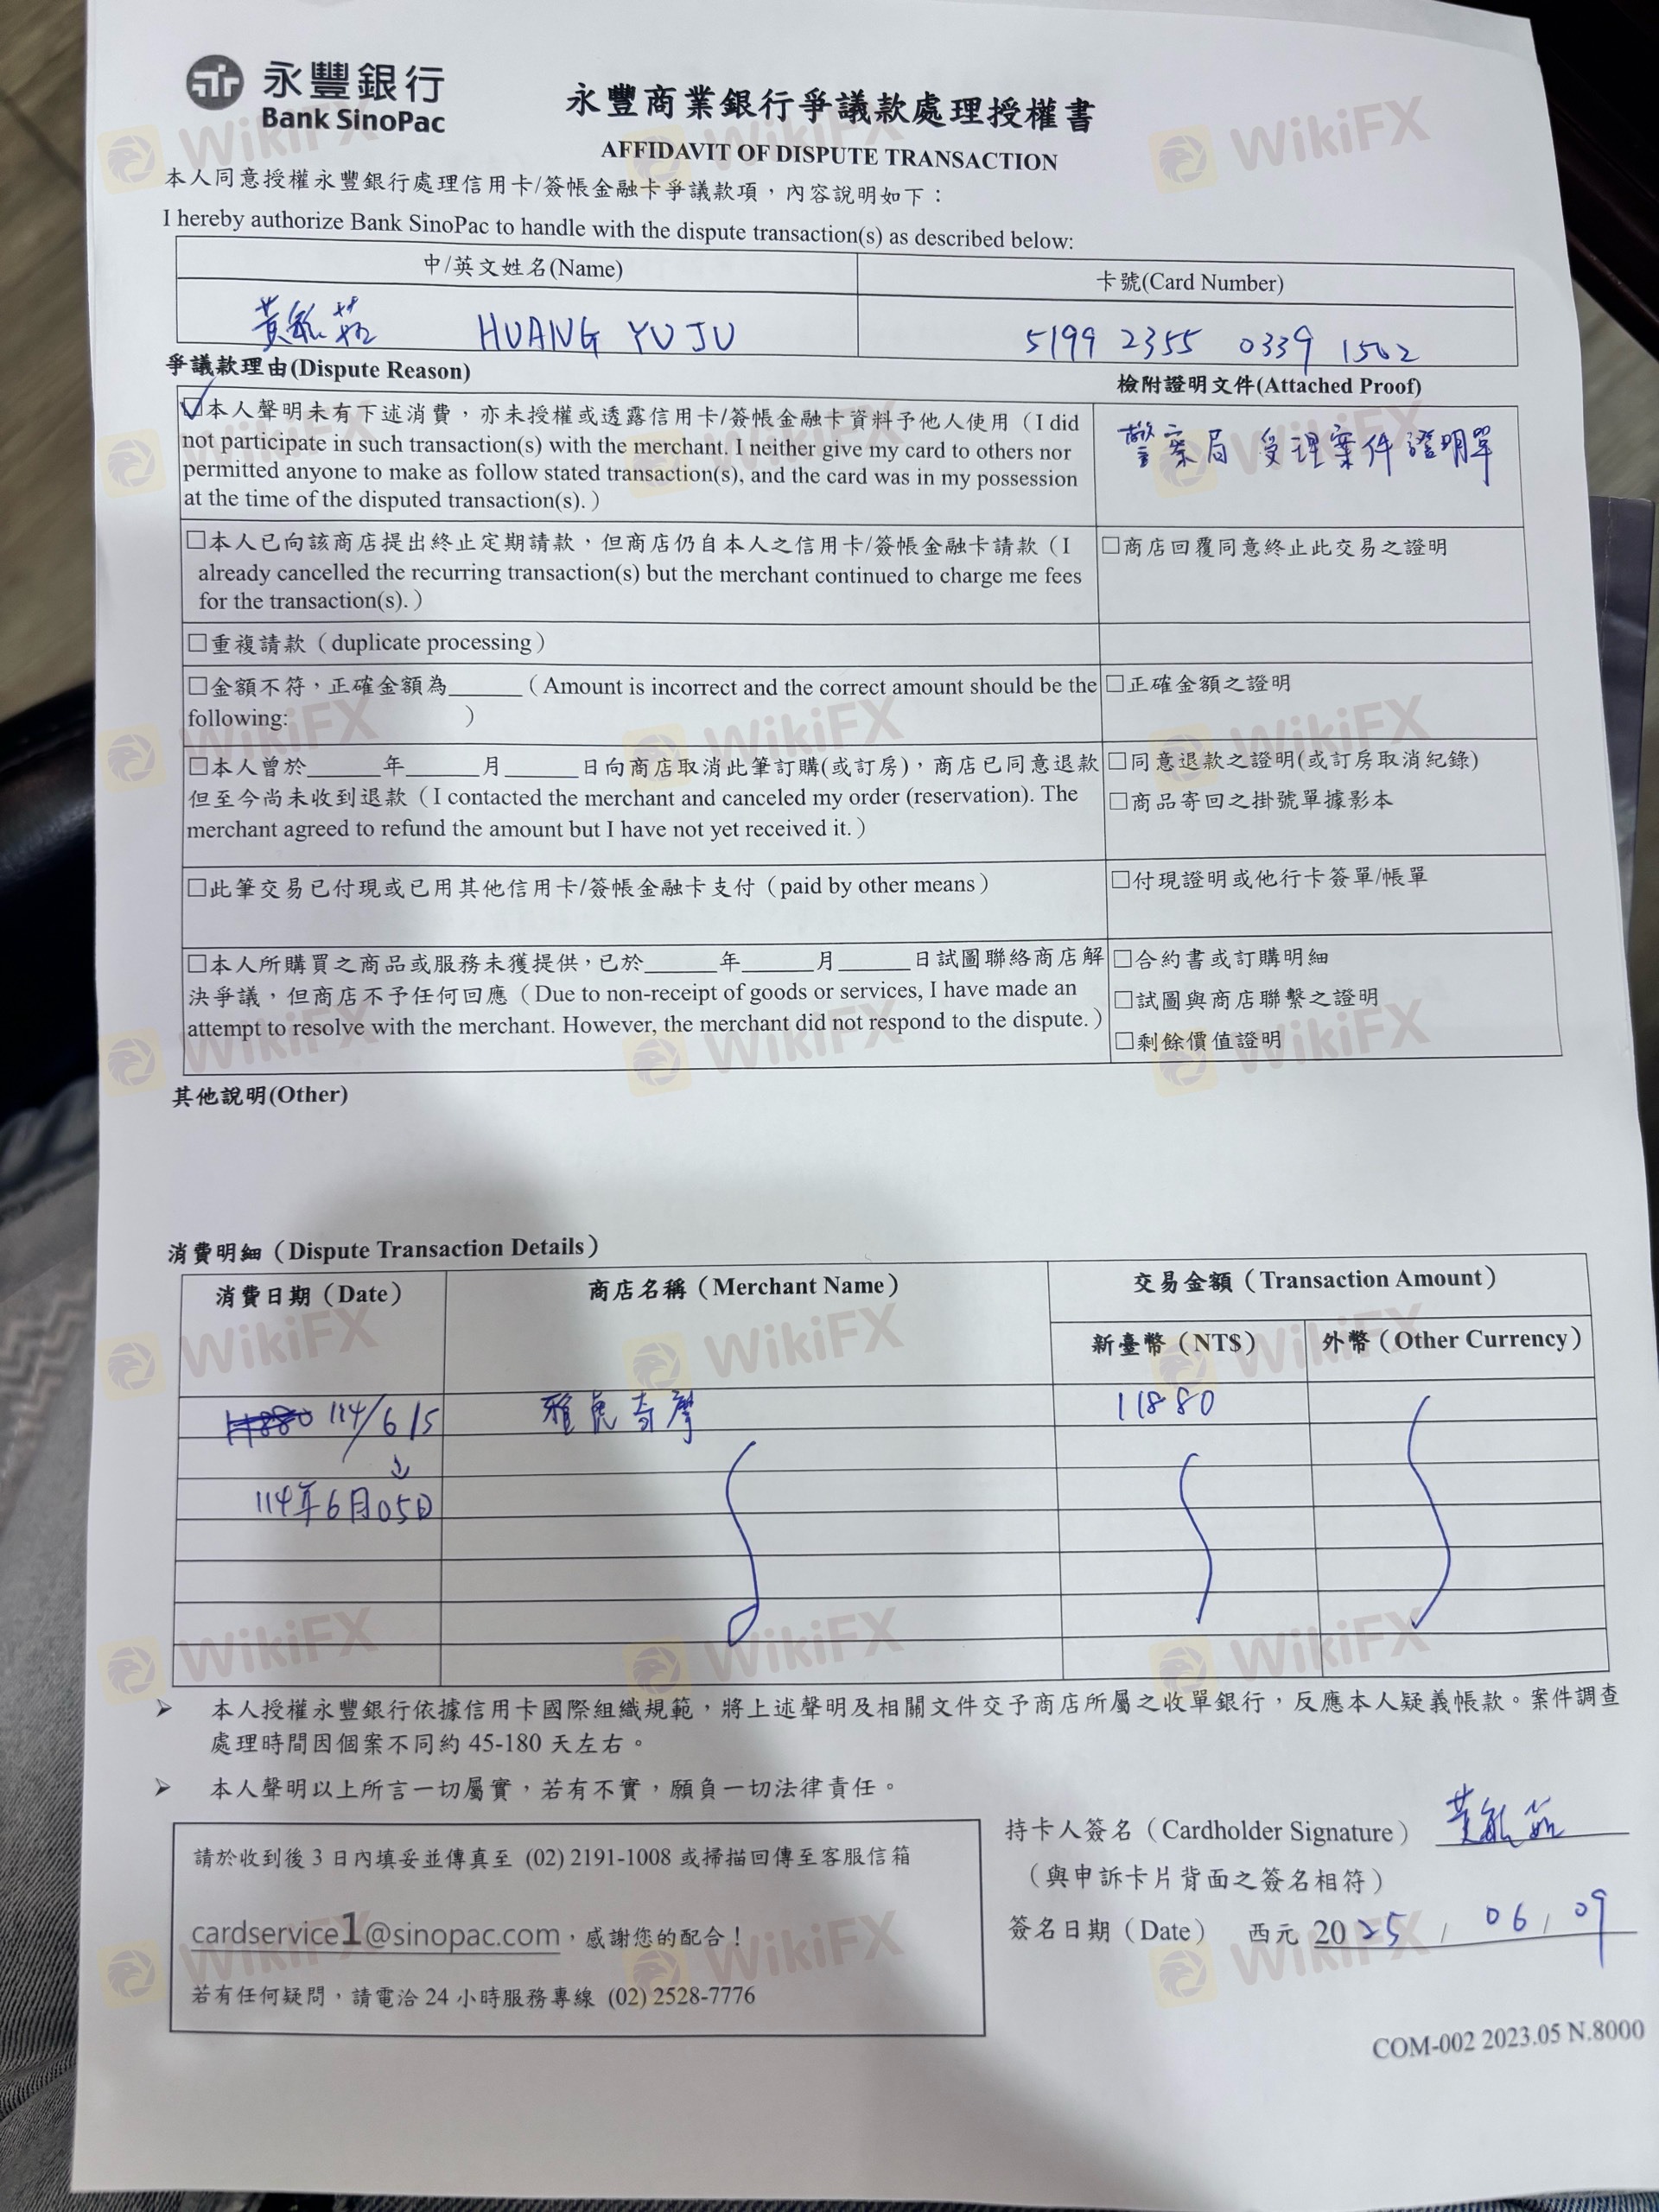 永豐銀行
Bank SinoPac
永豐商業銀行爭議款處理授權書
AFFIDAVIT OF DISPUTE TRANSACTION
本人同意授權永豐銀行處理信用卡/簽帳金融卡爭議款項，內容說明如下：
I hereby authorize Bank SinoPac to handle with the dispute transaction(s) as described below:
中/英文姓名(Name)
卡號(Card Number)
黃 HUANG YU JU
5199 2355 0339 1502
爭議款理由(Dispute Reason)
檢附證明文件(Attached Proof)
☑本人聲明未有下述消費，亦未授權或透露信用卡/簽帳金融卡資料予他人使用（I did
not participate in such transaction(s) with the merchant. I neither give my card to others nor
permitted anyone to make as follow stated transaction(s), and the card was in my possession
at the time of the disputed transaction(s).）
警察局 受理案件證明單
□本人已向該商店提出終止定期請款，但商店仍自本人之信用卡/簽帳金融卡請款（I
already cancelled the recurring transaction(s) but the merchant continued to charge me fees
for the transaction(s).）
□商店回覆同意終止此交易之證明
□重複請款（duplicate processing）
□金額不符，正確金額為______（Amount is incorrect and the correct amount should be the
following: ）
□正確金額之證明
□本人曾於______年______月______日向商店取消此筆訂購(或訂房)，商店已同意退款
但至今尚未收到退款（I contacted the merchant and canceled my order (reservation). The
merchant agreed to refund the amount but I have not yet received it.）
□同意退款之證明(或訂房取消紀錄)
□商品寄回之掛號單據影本
□此筆交易已付現或已用其他信用卡/簽帳金融卡支付（paid by other means）
□付現證明或他行卡簽單/帳單
□本人所購買之商品或服務未獲提供，已於______年______月______日試圖聯絡商店解
決爭議，但商店不予任何回應（Due to non-receipt of goods or services, I have made an
attempt to resolve with the merchant. However, the merchant did not respond to the dispute.）
□合約書或訂購明細
□試圖與商店聯繫之證明
□剩餘價值證明
其他說明(Other)
消費明細（Dispute Transaction Details）
消費日期（Date）
商店名稱（Merchant Name）
交易金額（Transaction Amount）
新臺幣（NT$）
外幣（Other Currency）
114/6/5
雅虎奇摩
11880
114年6月05日
➢ 本人授權永豐銀行依據信用卡國際組織規範，將上述聲明及相關文件交予商店所屬之收單銀行，反應本人疑義帳款。案件調查
處理時間因個案不同約 45-180 天左右。
➢ 本人聲明以上所言一切屬實，若有不實，願負一切法律責任。
請於收到後 3 日內填妥並傳真至 (02) 2191-1008 或掃描回傳至客服信箱
cardservice1@sinopac.com，感謝您的配合！
若有任何疑問，請電洽 24 小時服務專線 (02) 2528-7776
持卡人簽名（Cardholder Signature） 黃
（與申訴卡片背面之簽名相符）
簽名日期（Date） 西元 2025 / 06 / 09
COM-002 2023.05 N.8000
WikiFX